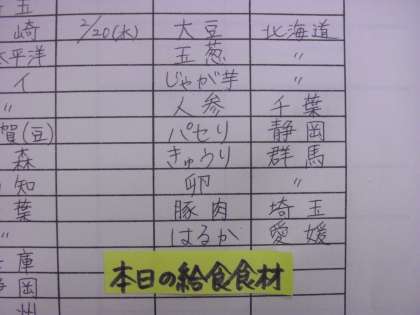 玉
崎 2/20(水) 大豆 北海道
太平洋 五葱 〃
イ じゃが芋 〃
〃 人参 千葉
賀(豆) パセリ 静岡
森 きゅうり 群馬
知 卵 〃
葉 豚肉 埼玉
〃 はるか 愛媛
庫
岡
州
本日の給食食材